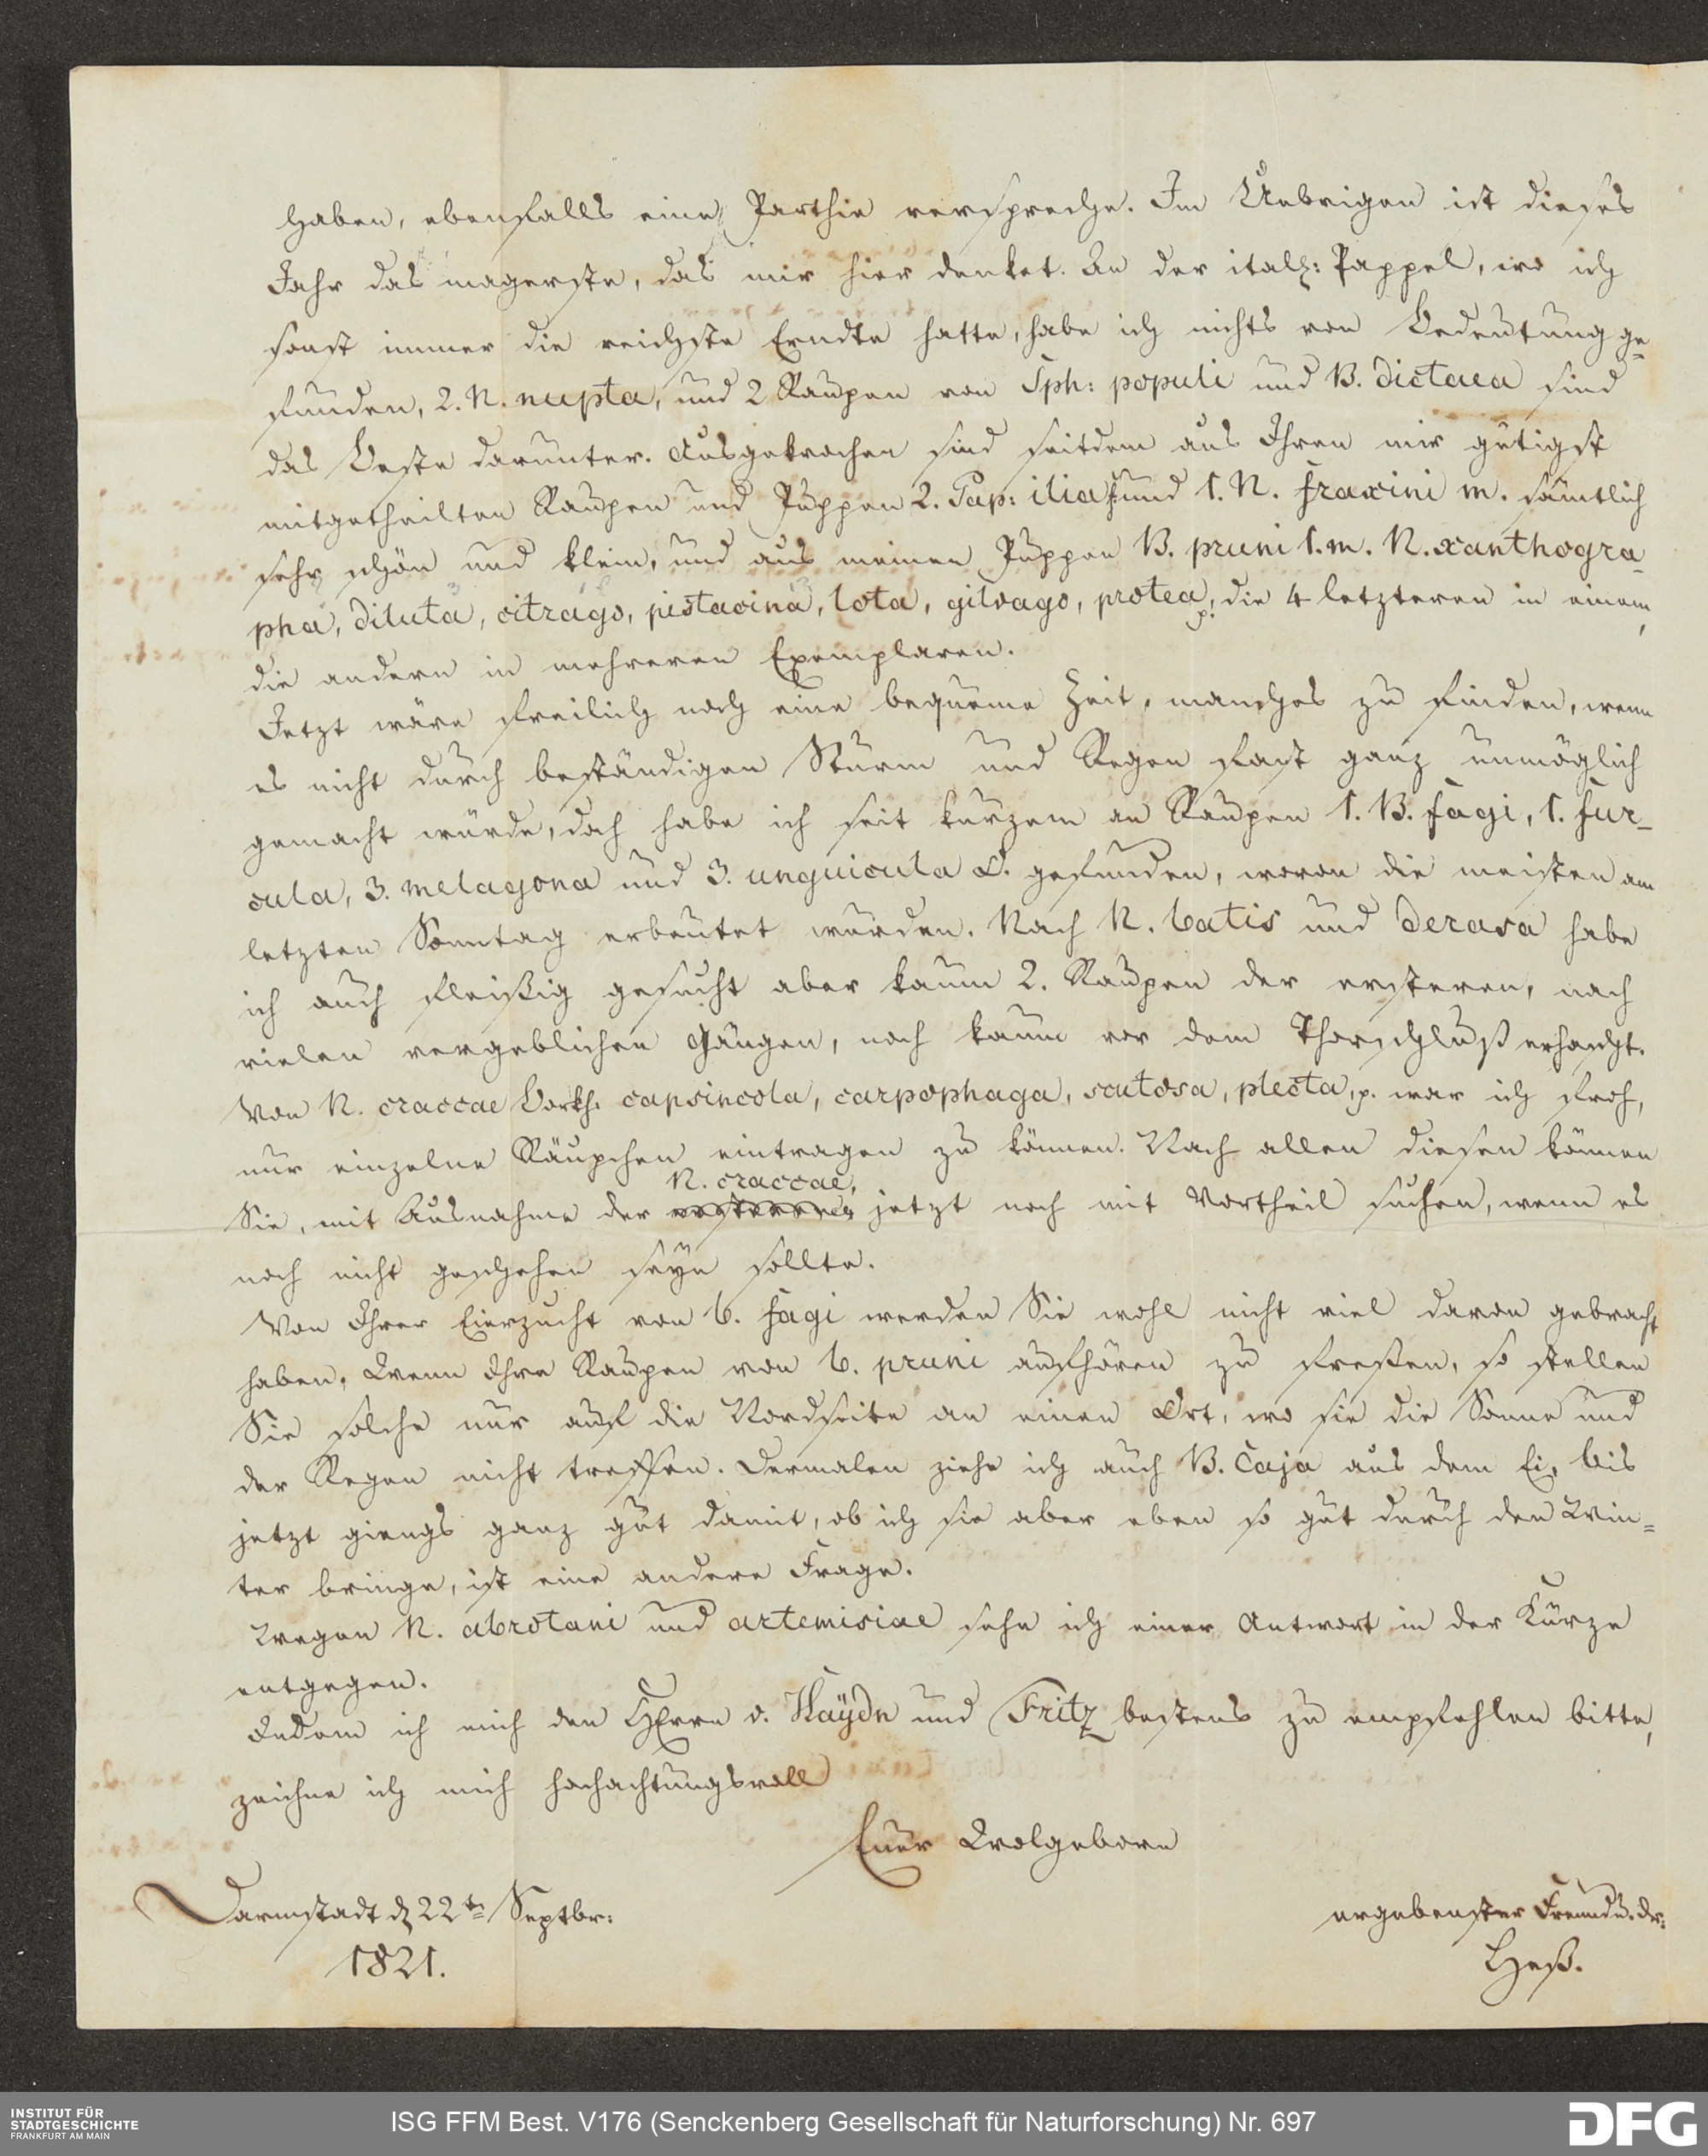 haben, ebenfalls eine Parthie verspreche. Im Uebrigen ist dieses
Jahr das magerste, das mir hier denket. An der ital: Pappel, wo ich
sonst immer die reichste Erndte hatte, habe ich nichts von Bedeutung ge=
funden, 2. N. nupta, und 2 Raupen von Sph: populi und B. dictaea sind
das Beste darunter. Ausgekrochen sind seitdem aus Ihren mir gütigst
mitgetheilten Raupen und Puppen 2. Pap: ilia f. und 1. N. fraxini m. sämtlich
sehr schön und klein, und aus meinen Puppen B. pruni 1. m. N. xanthogra=
pha, diluta, citrago, pistacina, lota, gilvago, protea p. die 4 letzteren in einem,
die andern in mehreren Exemplaren.
Jetzt wäre freilich noch eine bequeme Zeit, manches zu finden, wenn
es nicht durch beständigen Sturm und Regen fast ganz unmöglich
gemacht würde, doch habe ich seit kurzem an Raupen 1. B. fagi, 1. fur=
cula, 3. melagona und 3. unguicula d. gefunden, wovon die meisten am
letzten Sonntag erbeutet wurden. Nach N. batis und derasa habe
ich auch fleißig gesucht aber kaum 2. Raupen der ersteren, nach
vielen vergeblichen Gängen, noch kaum vor dem Thorschluß erhascht.
Von N. craccae Borkh. capsincola, carpophaga, scutosa, plecta, p. war ich froh,
nur einzelne Räupchen eintragen zu können. Nach allen diesen können
N. craccae,
Sie, mit Ausnahme der ersteren, jetzt noch mit Vortheil suchen, wenn es
noch nicht geschehen seyn sollte.
Von Ihrer Eierzucht von b. fagi werden Sie wohl nicht viel davon gebracht
haben. Wenn Ihre Raupen von b. pruni aufhören zu freßen, so stellen
Sie solche nur auf die Nordseite an einen Ort, wo sie die Sonne und
der Regen nicht treffen. Dermalen ziehe ich auch B. Caja aus dem Ei, bis
jetzt giengs ganz gut damit, ob ich sie aber eben so gut durch den Win=
ter bringe, ist eine andere Frage.
Wegen N. abrotani und artemisiae sehe ich einer Antwort in der Kürze
entgegen.
Indem ich mich den HErrn v. Haÿdn und Fritz bestens zu empfehlen bitte,
zeichne ich mich hochachtungsvoll
Euer Wolgeborn
Darmstadt d 22ten Septbr:
1821.
ergebenster Freund u. dr:
Heß.
INSTITUT FÜR
STADTGESCHICHTE
FRANKFURT AM MAIN
ISG FFM Best. V176 (Senckenberg Gesellschaft für Naturforschung) Nr. 697
DFG